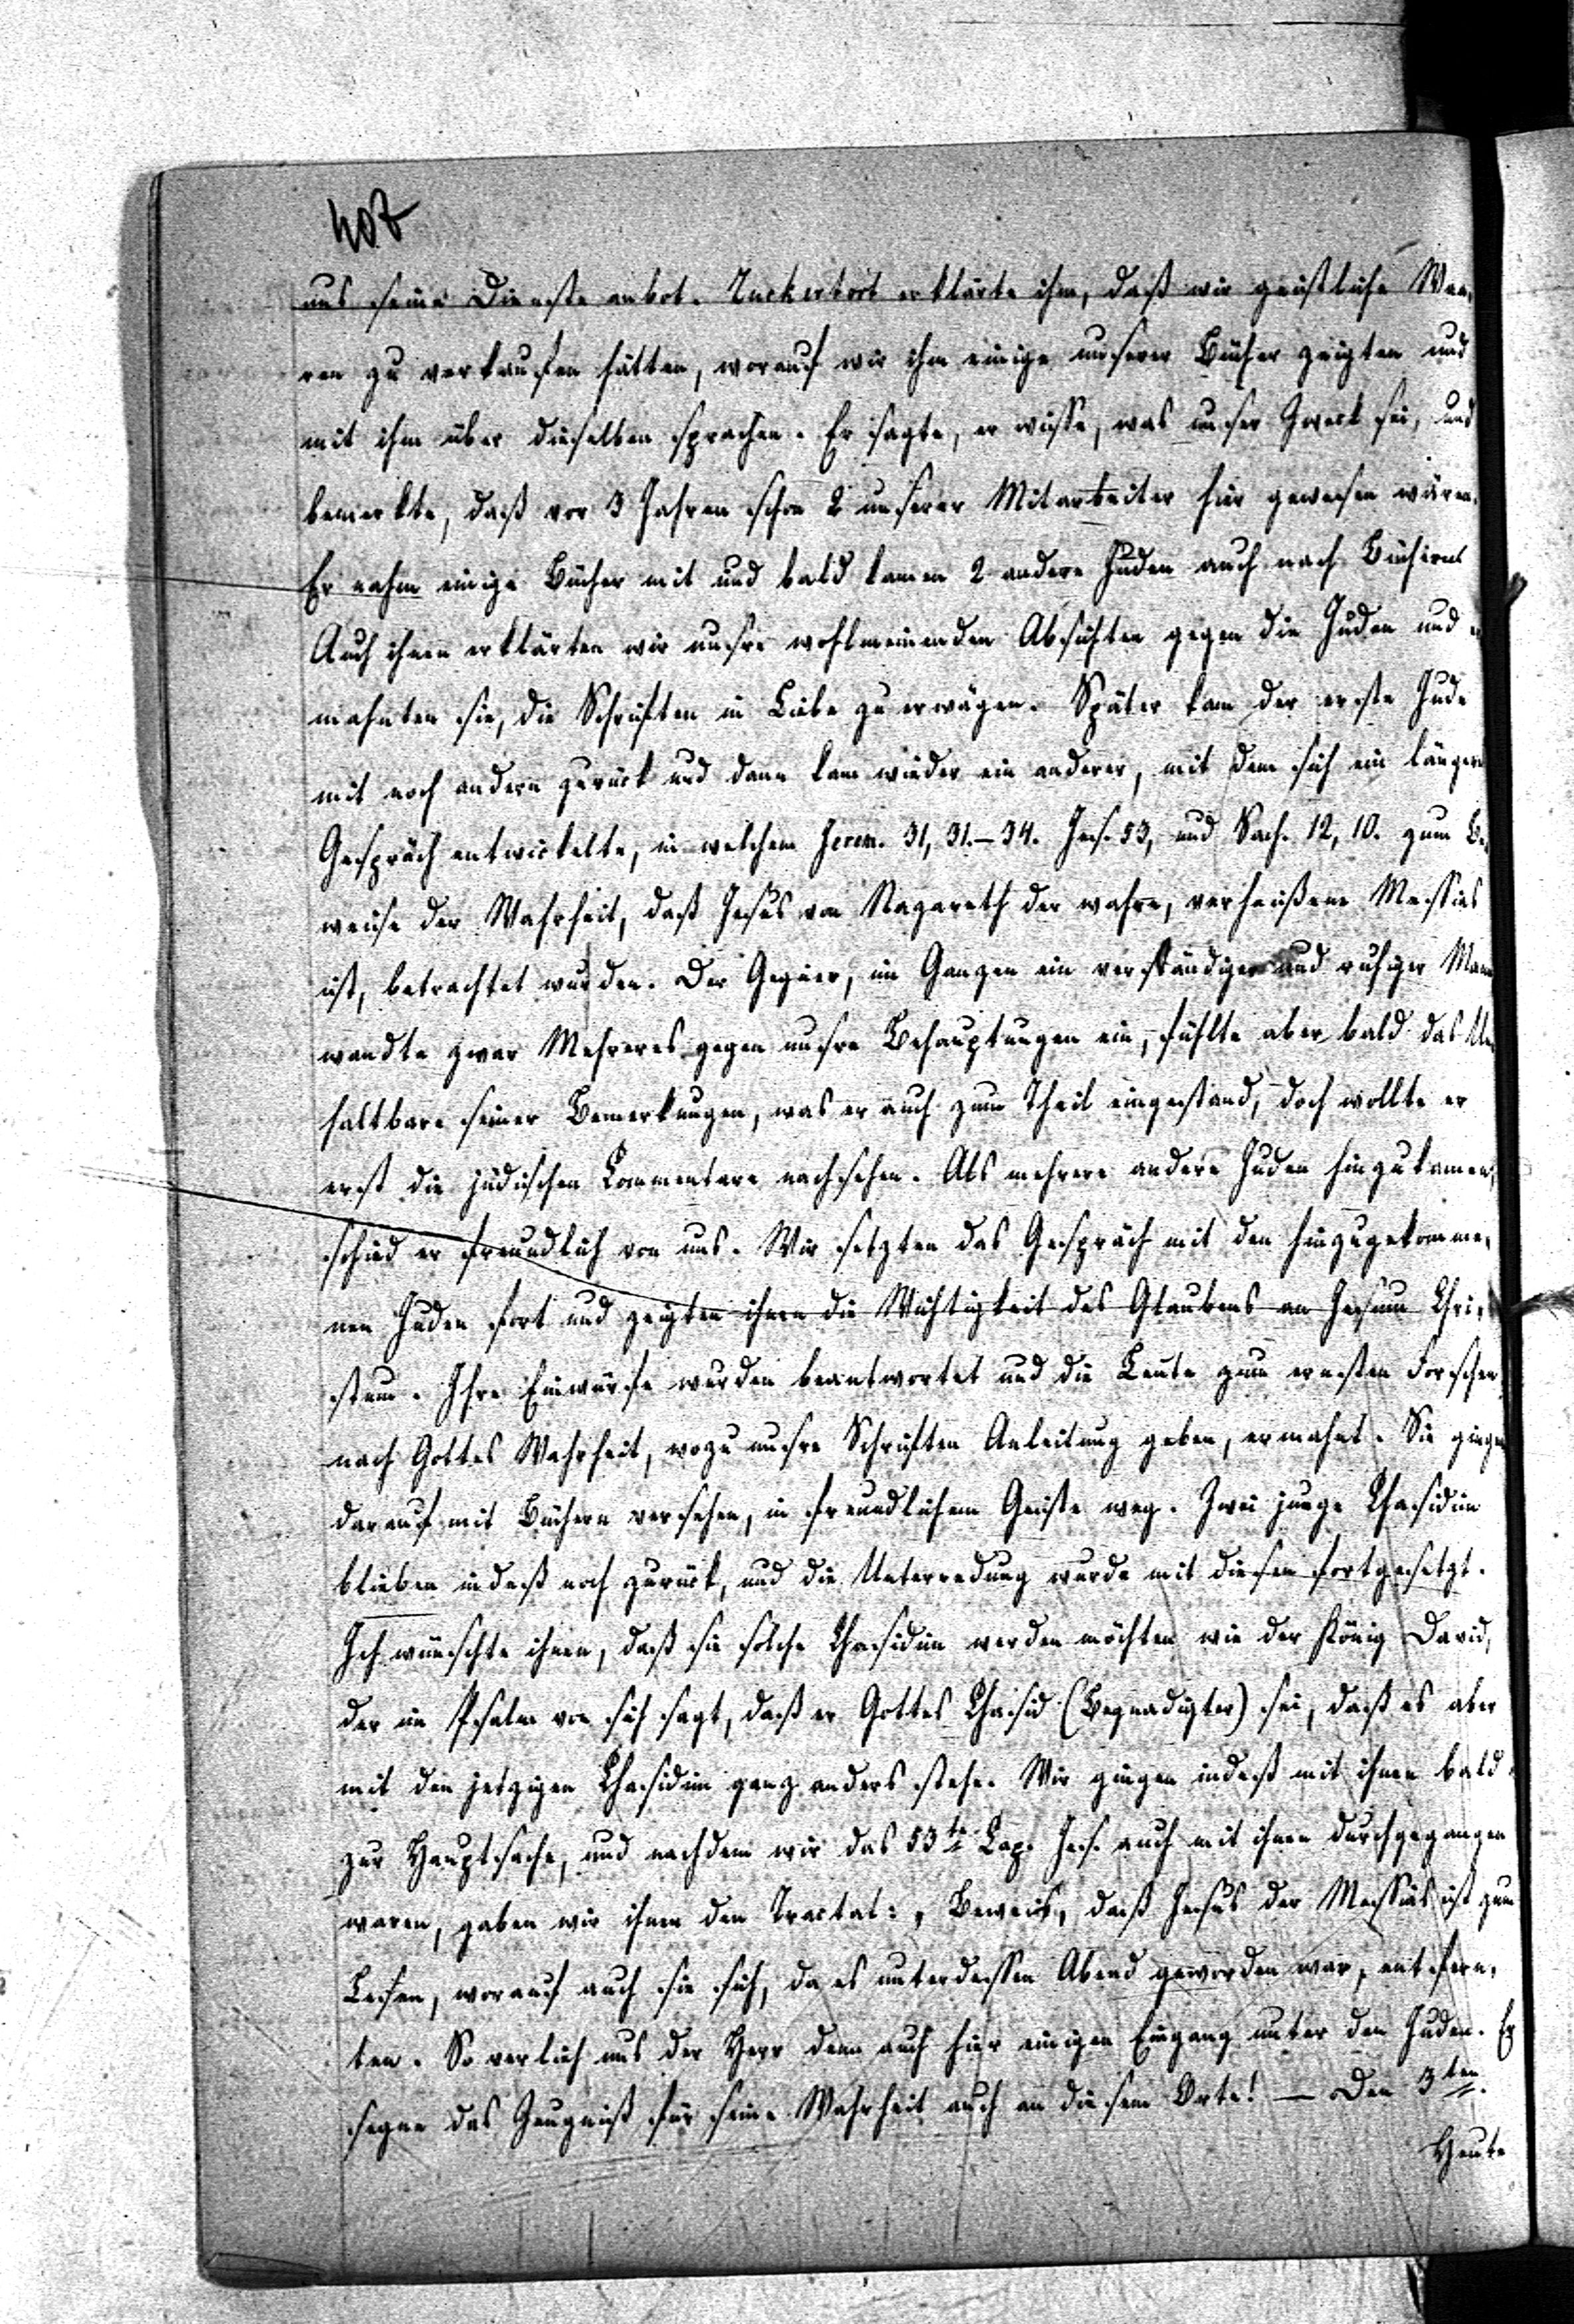 407
uns seine Dienste anbot. Zuckertort erklärte ihm, daß wir geistliche Waa-
ren zu verkaufen hätten, worauf wir ihm einige unserer Bücher zeigten und
mit ihm über dieselben sprachen. Er sagte, er wisse, was unser Zweck sei, und
bemerkte, daß vor 3 Jahren schon 2 unserer Mitarbeiter hier gewesen wären.
Er nahm einige Bücher mit und bald kamen 2 andere Juden auch nach Büchern
Auch ihnen erklärten wir unsre wohlmeinenden Absichten gegen die Juden und er
mahnten sie, die Schriften in Liebe zu erwägen. Später kam der erste Jude
mit noch andern zurück und dann kam wieder ein anderer, mit dem sich ein längeres
Gespräch entwickelte, in welchem Jerem. 31, 31.–34. Jes. 53, und Sach. 12, 10. zum Be-
weise der Wahrheit, daß Jesus von Nazareth der wahre, verheißene Messias
ist, betrachtet wurden. Der Gegner, im Ganzen ein verständiger und ruhiger Mann
wandte zwar Mehreres gegen unsre Behauptungen ein, fühlte aber bald das Un
haltbare seiner Bemerkungen, was er auch zum Theil eingestand, doch wollte er
erst die jüdischen Commentare nachsehen. Als mehrere andere Juden hinzukamen,
schied er freundlich von uns. Wir setzten das Gespräch mit den hinzugekomme-
nen Juden fort und zeigten ihnen die Wichtigkeit des Glaubens an Jesum Chri-
stum. Ihre Einwürfe wurden beantwortet und die Leute zum ernsten Forschen
nach Gottes Wahrheit, wozu unsre Schriften Anleitung geben, ermahnt. Sie gingen
darauf mit Büchern versehen, in freundlichem Geiste weg. Zwei junge Chasidim
blieben indeß noch zurück, und die Unterredung wurde mit diesen fortgesetzt.
Ich wünschte ihnen, daß sie solche Chasidim werden möchten wie der König David,
der im Psalm von sich sagt, daß er Gottes Chasid (Begnadigter) sei, daß es aber
mit den jetzigen Chasidim ganz anders stehe. Wir gingen indeß mit ihnen bald
zur Hauptsache, und nachdem wir das 53te Cap. Jes. auch mit ihnen durchgegangen
waren, gaben wir ihnen den Tractat: „Beweis, daß Jesus der Messias ist zum
Lesen, worauf auch sie sich, da es unterdessen Abend geworden war, entfern-
ten. So verlieh uns der Herr denn auch hier einigen Eingang unter den Juden. Er
segne das Zeugniß für seine Wahrheit auch an diesem Orte! — Den 3ten.
Heute